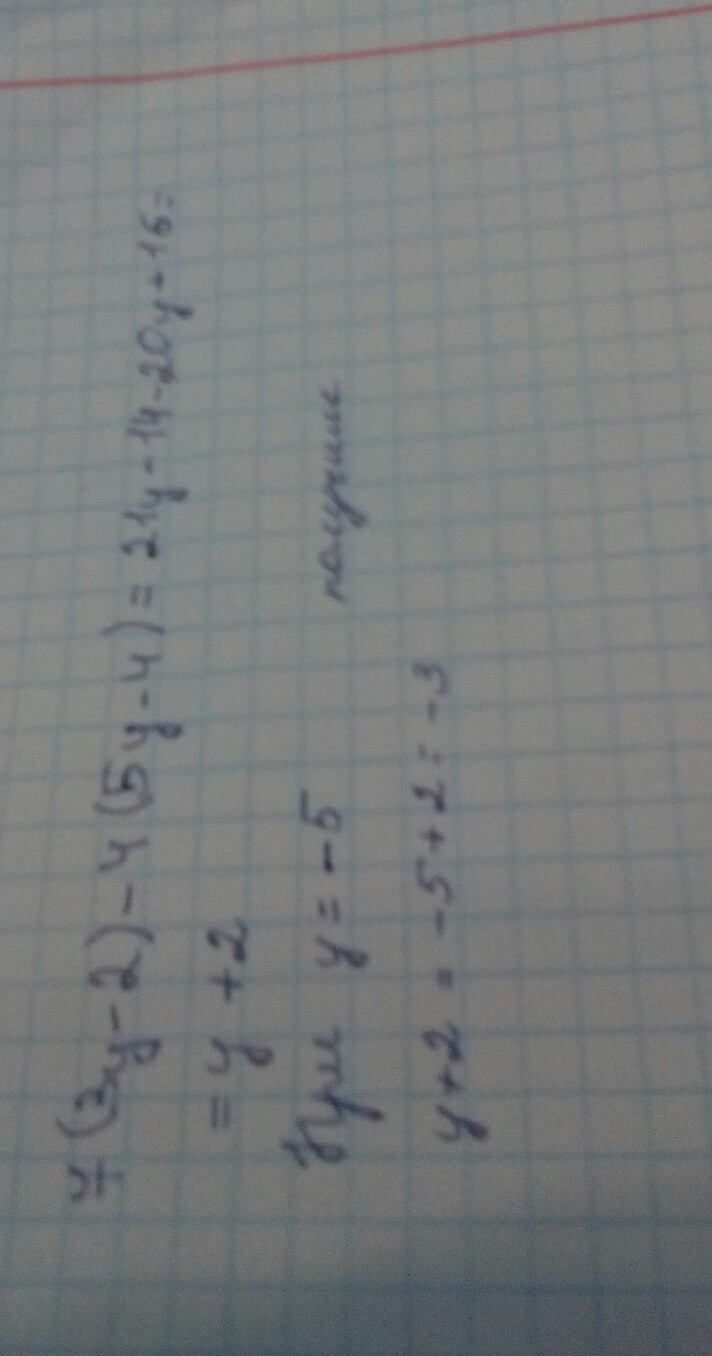 7(3у-2)-4(5у-4)=21у-14-20у+16=
=у+2
При у=-5 получим
у+2=-5+2=-3